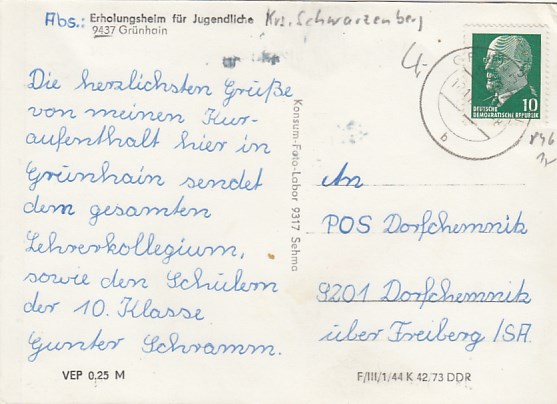 Abs.: Erholungsheim für Jugendliche Krs. Schwarzenberg
9437 Grünhain
Die herzlichsten Grüße
von meinen Kur-
aufenthalt hier in
Grünhain sendet
dem gesamten
Lehrerkollegium,
sowie den Schülern
der 10. Klasse
Gunter Schramm.
VEP 0,25 M
Konsum-Foto-Labor 9317 Sehma
10
DEUTSCHE
DEMOKRATISCHE REPUBLIK
b
An
POS Dorfchemnitz
9201 Dorfchemnitz
über Freiberg /SA.
F/III/1/44 K 42/73 DDR